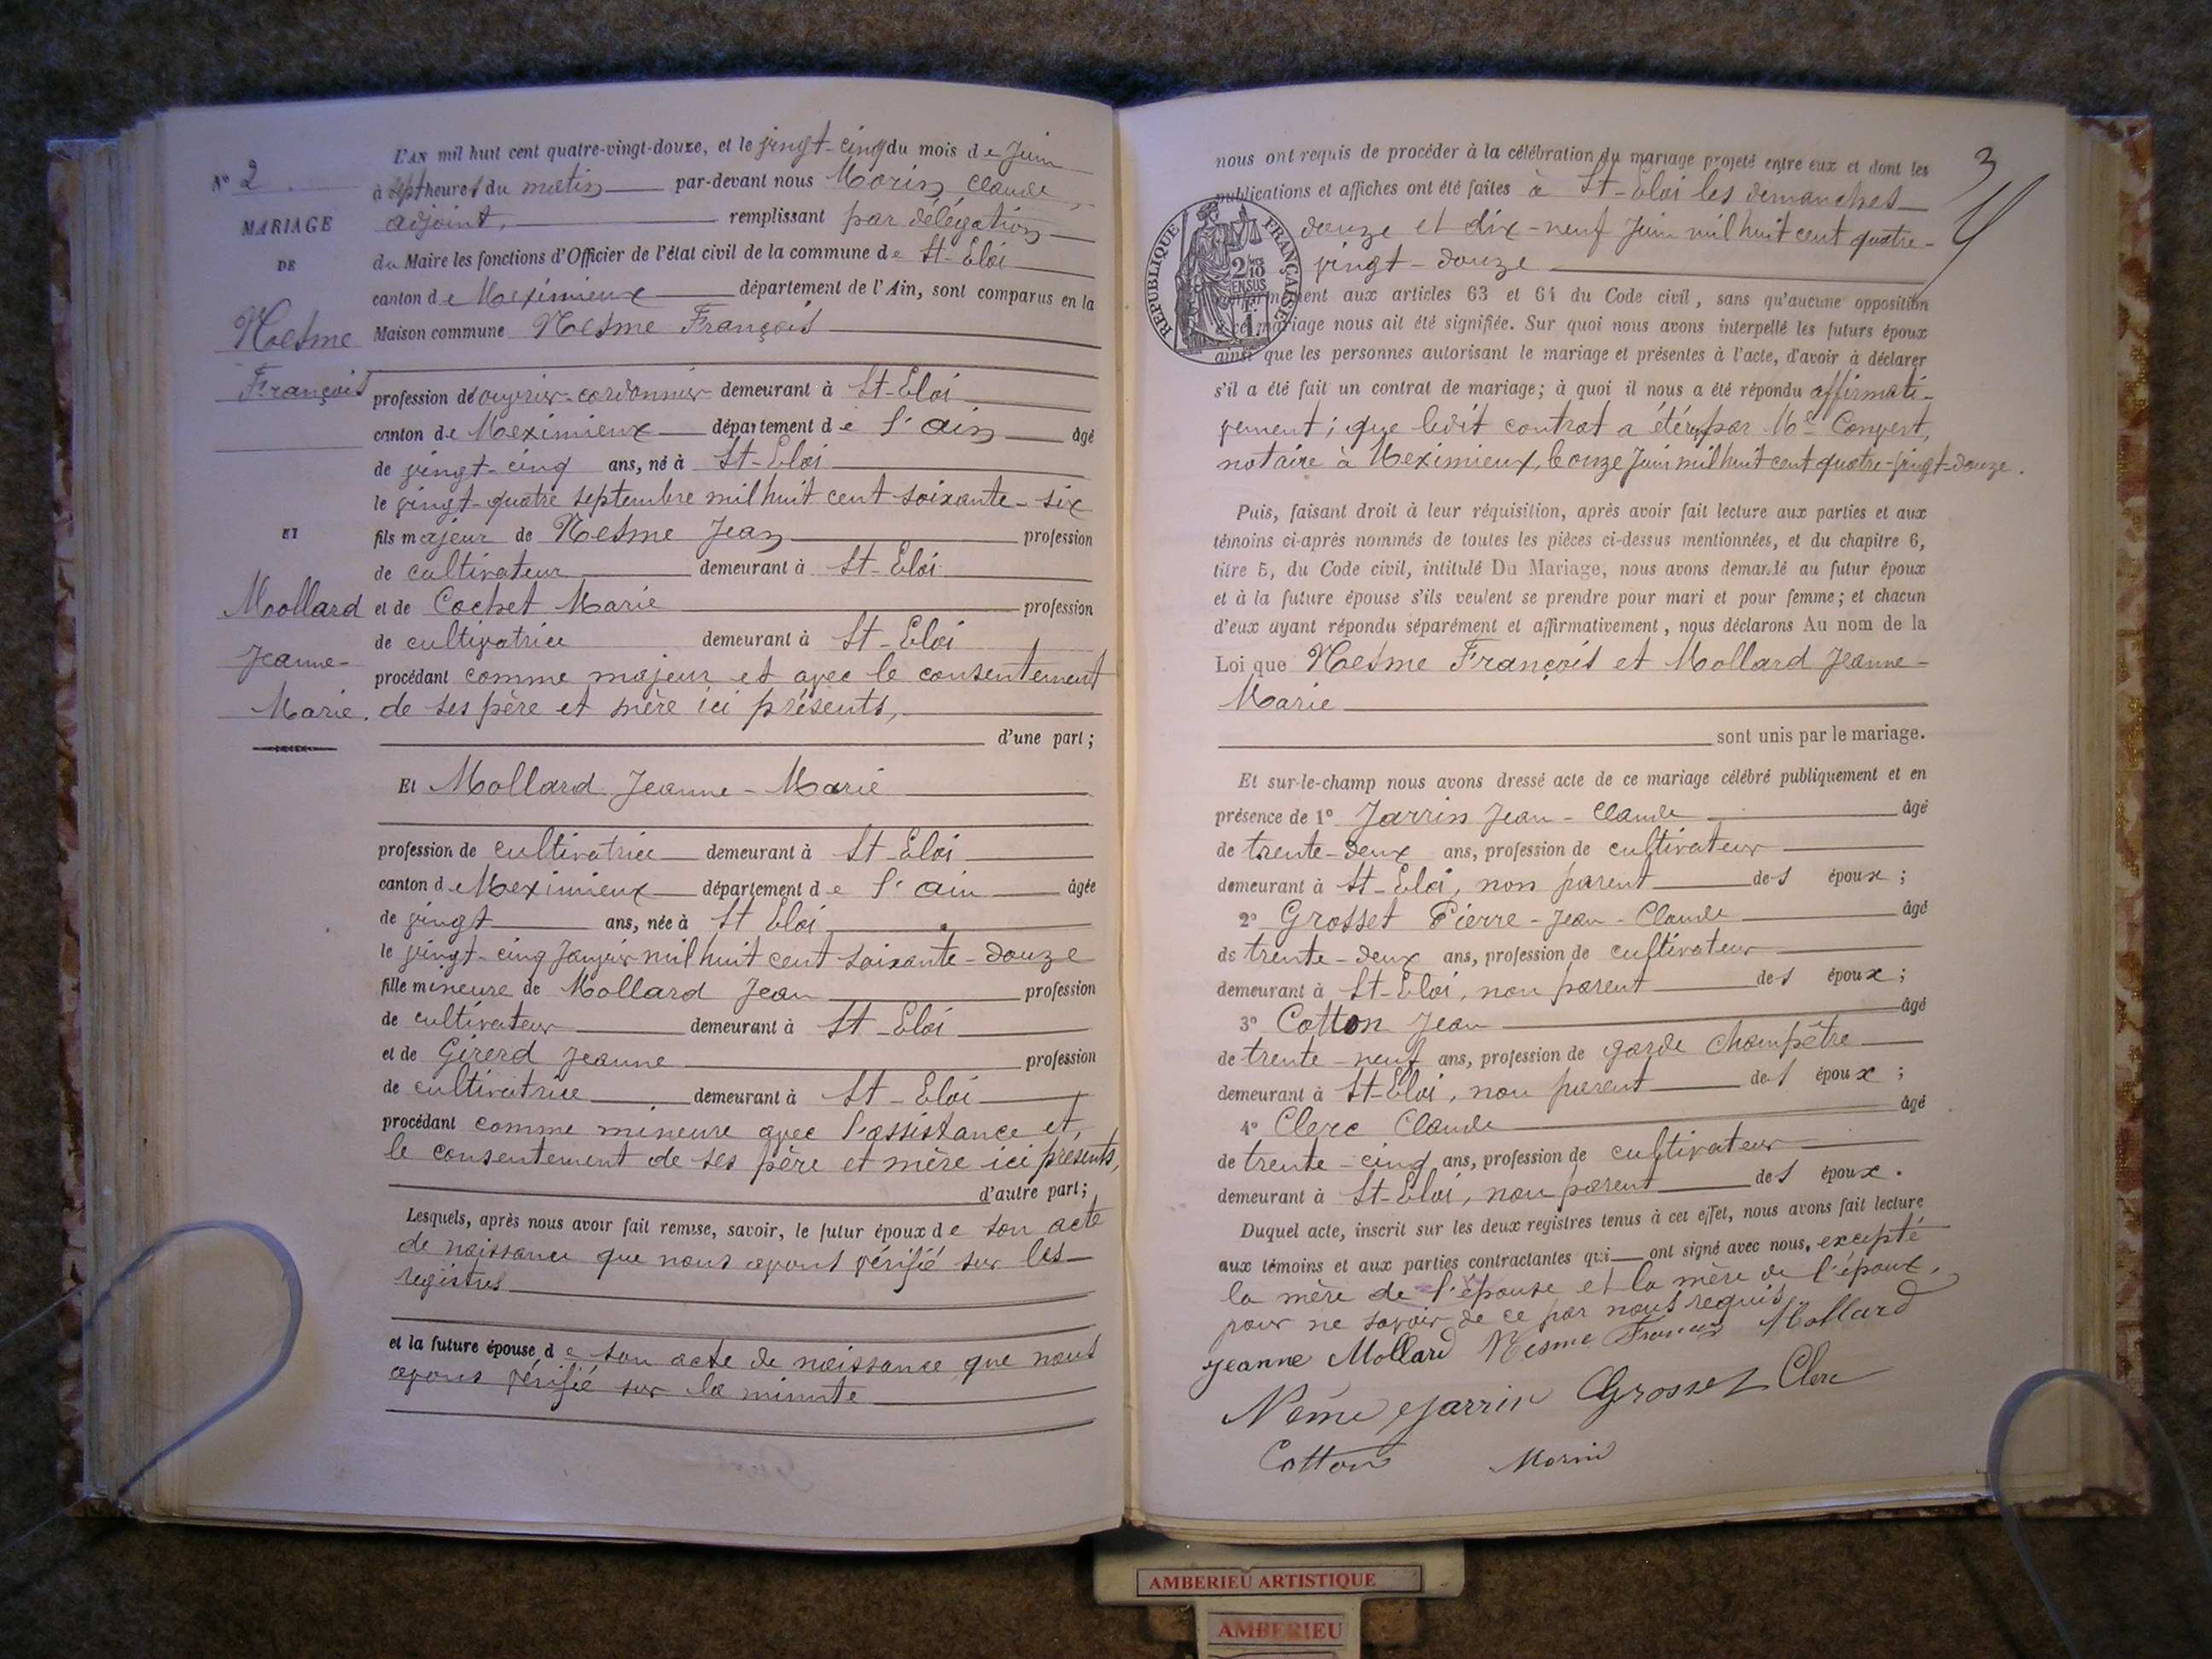 N° 2
MARIAGE
DE
Nesme
François
ET
Mollard
Jeanne-
Marie.
L'AN mil huit cent quatre-vingt-douze, et le vingt-cinq du mois de Juin
à sept heures du matin par-devant nous Morin Claude,
adjoint, remplissant par délégation
du Maire les fonctions d'Officier de l'état civil de la commune de St-Eloi
canton de Meximieux département de l'Ain, sont comparus en la
Maison commune Nesme François
profession d'ouvrier-cordonnier demeurant à St-Eloi
canton de Meximieux département de l'Ain âgé
de vingt-cinq ans, né à St-Eloi
le vingt-quatre septembre mil huit cent soixante-six
fils majeur de Nesme Jean profession
de cultivateur demeurant à St-Eloi
et de Cochet Marie profession
de cultivatrice demeurant à St-Eloi
procédant comme majeur et avec le consentement
de ses père et mère ici présents,
d'une part;
Et Mollard Jeanne-Marie
profession de cultivatrice demeurant à St-Eloi
canton de Meximieux département de l'Ain âgée
de vingt ans, née à St Eloi
le vingt-cinq Janvier mil huit cent soixante-douze
fille mineure de Mollard Jean profession
de cultivateur demeurant à St-Eloi
et de Girerd Jeanne profession
de cultivatrice demeurant à St-Eloi
procédant comme mineure avec l'assistance et,
le consentement de ses père et mère ici présents,
d'autre part;
Lesquels, après nous avoir fait remise, savoir, le futur époux de son acte
de naissance que nous avons vérifié sur les
registres
et la future épouse de son acte de naissance que nous
avons vérifié sur la minute
3
nous ont requis de procéder à la célébration du mariage projeté entre eux et dont les
publications et affiches ont été faites à St-Eloi les dimanches
douze et dix-neuf Juin mil huit cent quatre-
vingt-douze
RÉPUBLIQUE FRANÇAISE
conformément aux articles 63 et 64 du Code civil, sans qu'aucune opposition
à ce mariage nous ait été signifiée. Sur quoi nous avons interpellé les futurs époux
ainsi que les personnes autorisant le mariage et présentes à l'acte, d'avoir à déclarer
s'il a été fait un contrat de mariage; à quoi il nous a été répondu affirmati-
vement; que ledit contrat a été reçu par Me Convert,
notaire à Meximieux, le onze Juin mil huit cent quatre-vingt-douze.
Puis, faisant droit à leur réquisition, après avoir fait lecture aux parties et aux
témoins ci-après nommés de toutes les pièces ci-dessus mentionnées, et du chapitre 6,
titre 5, du Code civil, intitulé Du Mariage, nous avons demandé au futur époux
et à la future épouse s'ils veulent se prendre pour mari et pour femme; et chacun
d'eux ayant répondu séparément et affirmativement, nous déclarons Au nom de la
Loi que Nesme François et Mollard Jeanne-
Marie
sont unis par le mariage.
Et sur-le-champ nous avons dressé acte de ce mariage célébré publiquement et en
présence de 1° Jarrin Jean-Claude âgé
de trente-deux ans, profession de cultivateur
demeurant à St-Eloi, non parent des époux;
2° Grosset Pierre-Jean-Claude âgé
de trente-deux ans, profession de cultivateur
demeurant à St-Eloi, non parent des époux;
3° Cotton Jean âgé
de trente-neuf ans, profession de garde champêtre
demeurant à St-Eloi, non parent des époux;
4° Clerc Claude âgé
de trente-cinq ans, profession de cultivateur
demeurant à St-Eloi, non parent des époux.
Duquel acte, inscrit sur les deux registres tenus à cet effet, nous avons fait lecture
aux témoins et aux parties contractantes qui ont signé avec nous, excepté
la mère de l'épouse et la mère de l'époux,
pour ne savoir de ce par nous requis.
Jeanne Mollard Nesme François Mollard
Néme Jarrin Grosset Clerc
Cotton Morin
AMBERIEU ARTISTIQUE
AMBERIEU